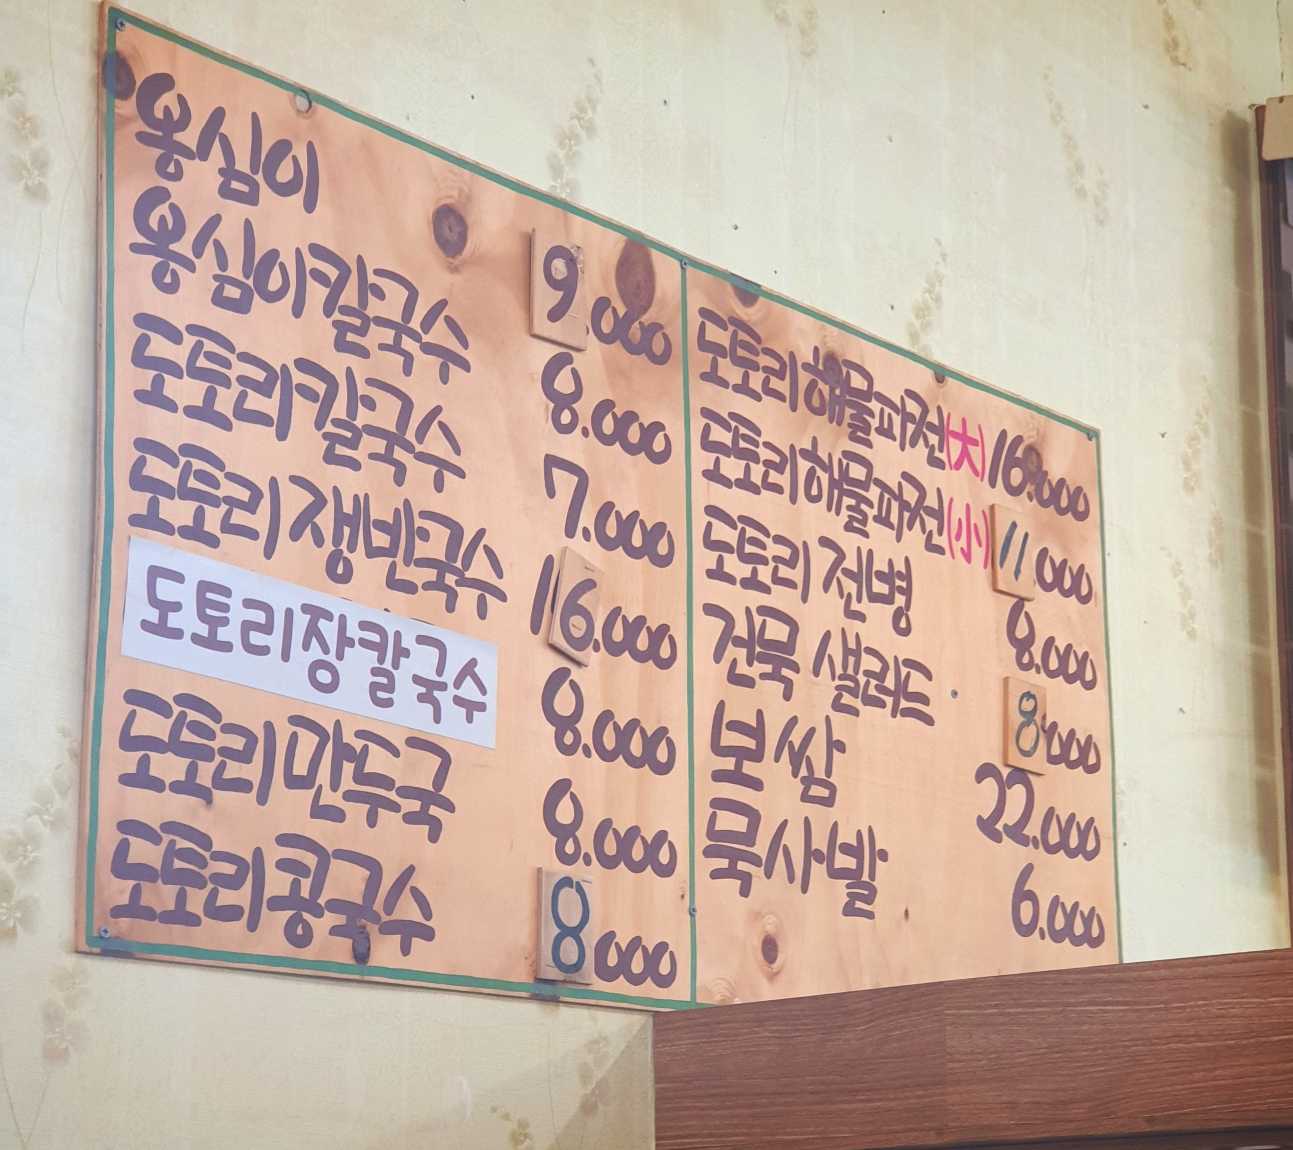 옹심이 9.000
옹심이칼국수 8.000
도토리칼국수 7.000
도토리쟁반국수 16.000
도토리장칼국수 8.000
도토리만두국 8.000
도토리콩국수 8000
도토리해물파전(大) 16.000
도토리해물파전(小) 11000
도토리 전병 8.000
건묵 샐러드 8.000
보쌈 22.000
묵사발 6.000